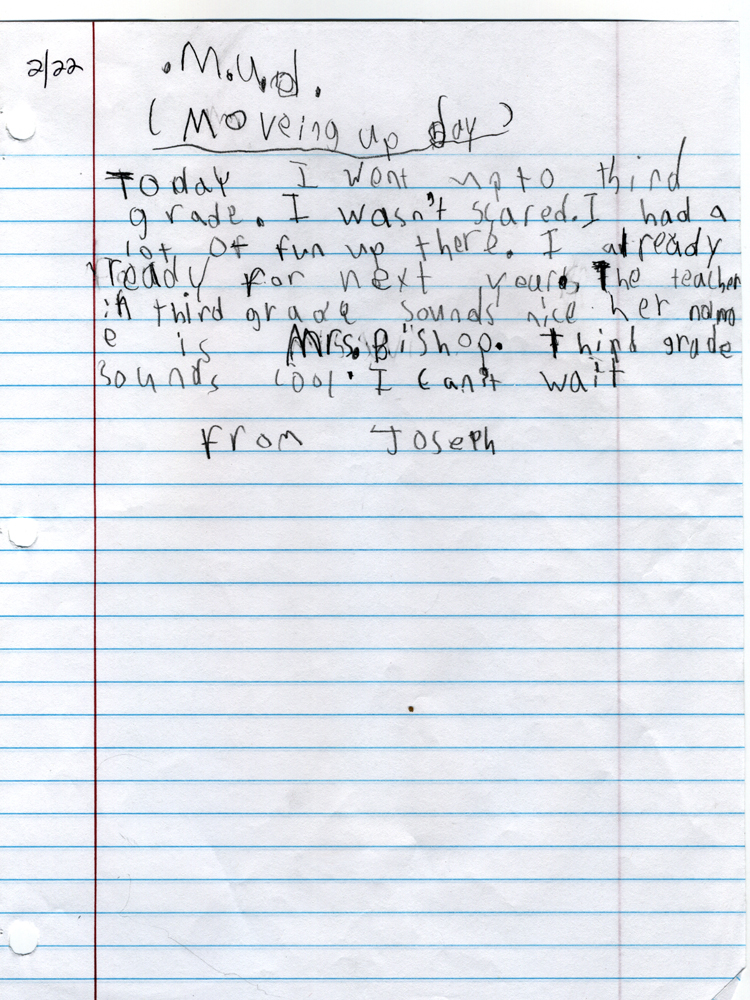 2/22
.M.U.d.
(Moveing up day)
Today I went up to third
grade. I wasn't scared. I had a
lot of fun up there. I already
ready for next year. The teacher
in third grade sounds nice her nam
e is Mrs. Bishop. Third grade
sounds cool. I can't wait
from Joseph